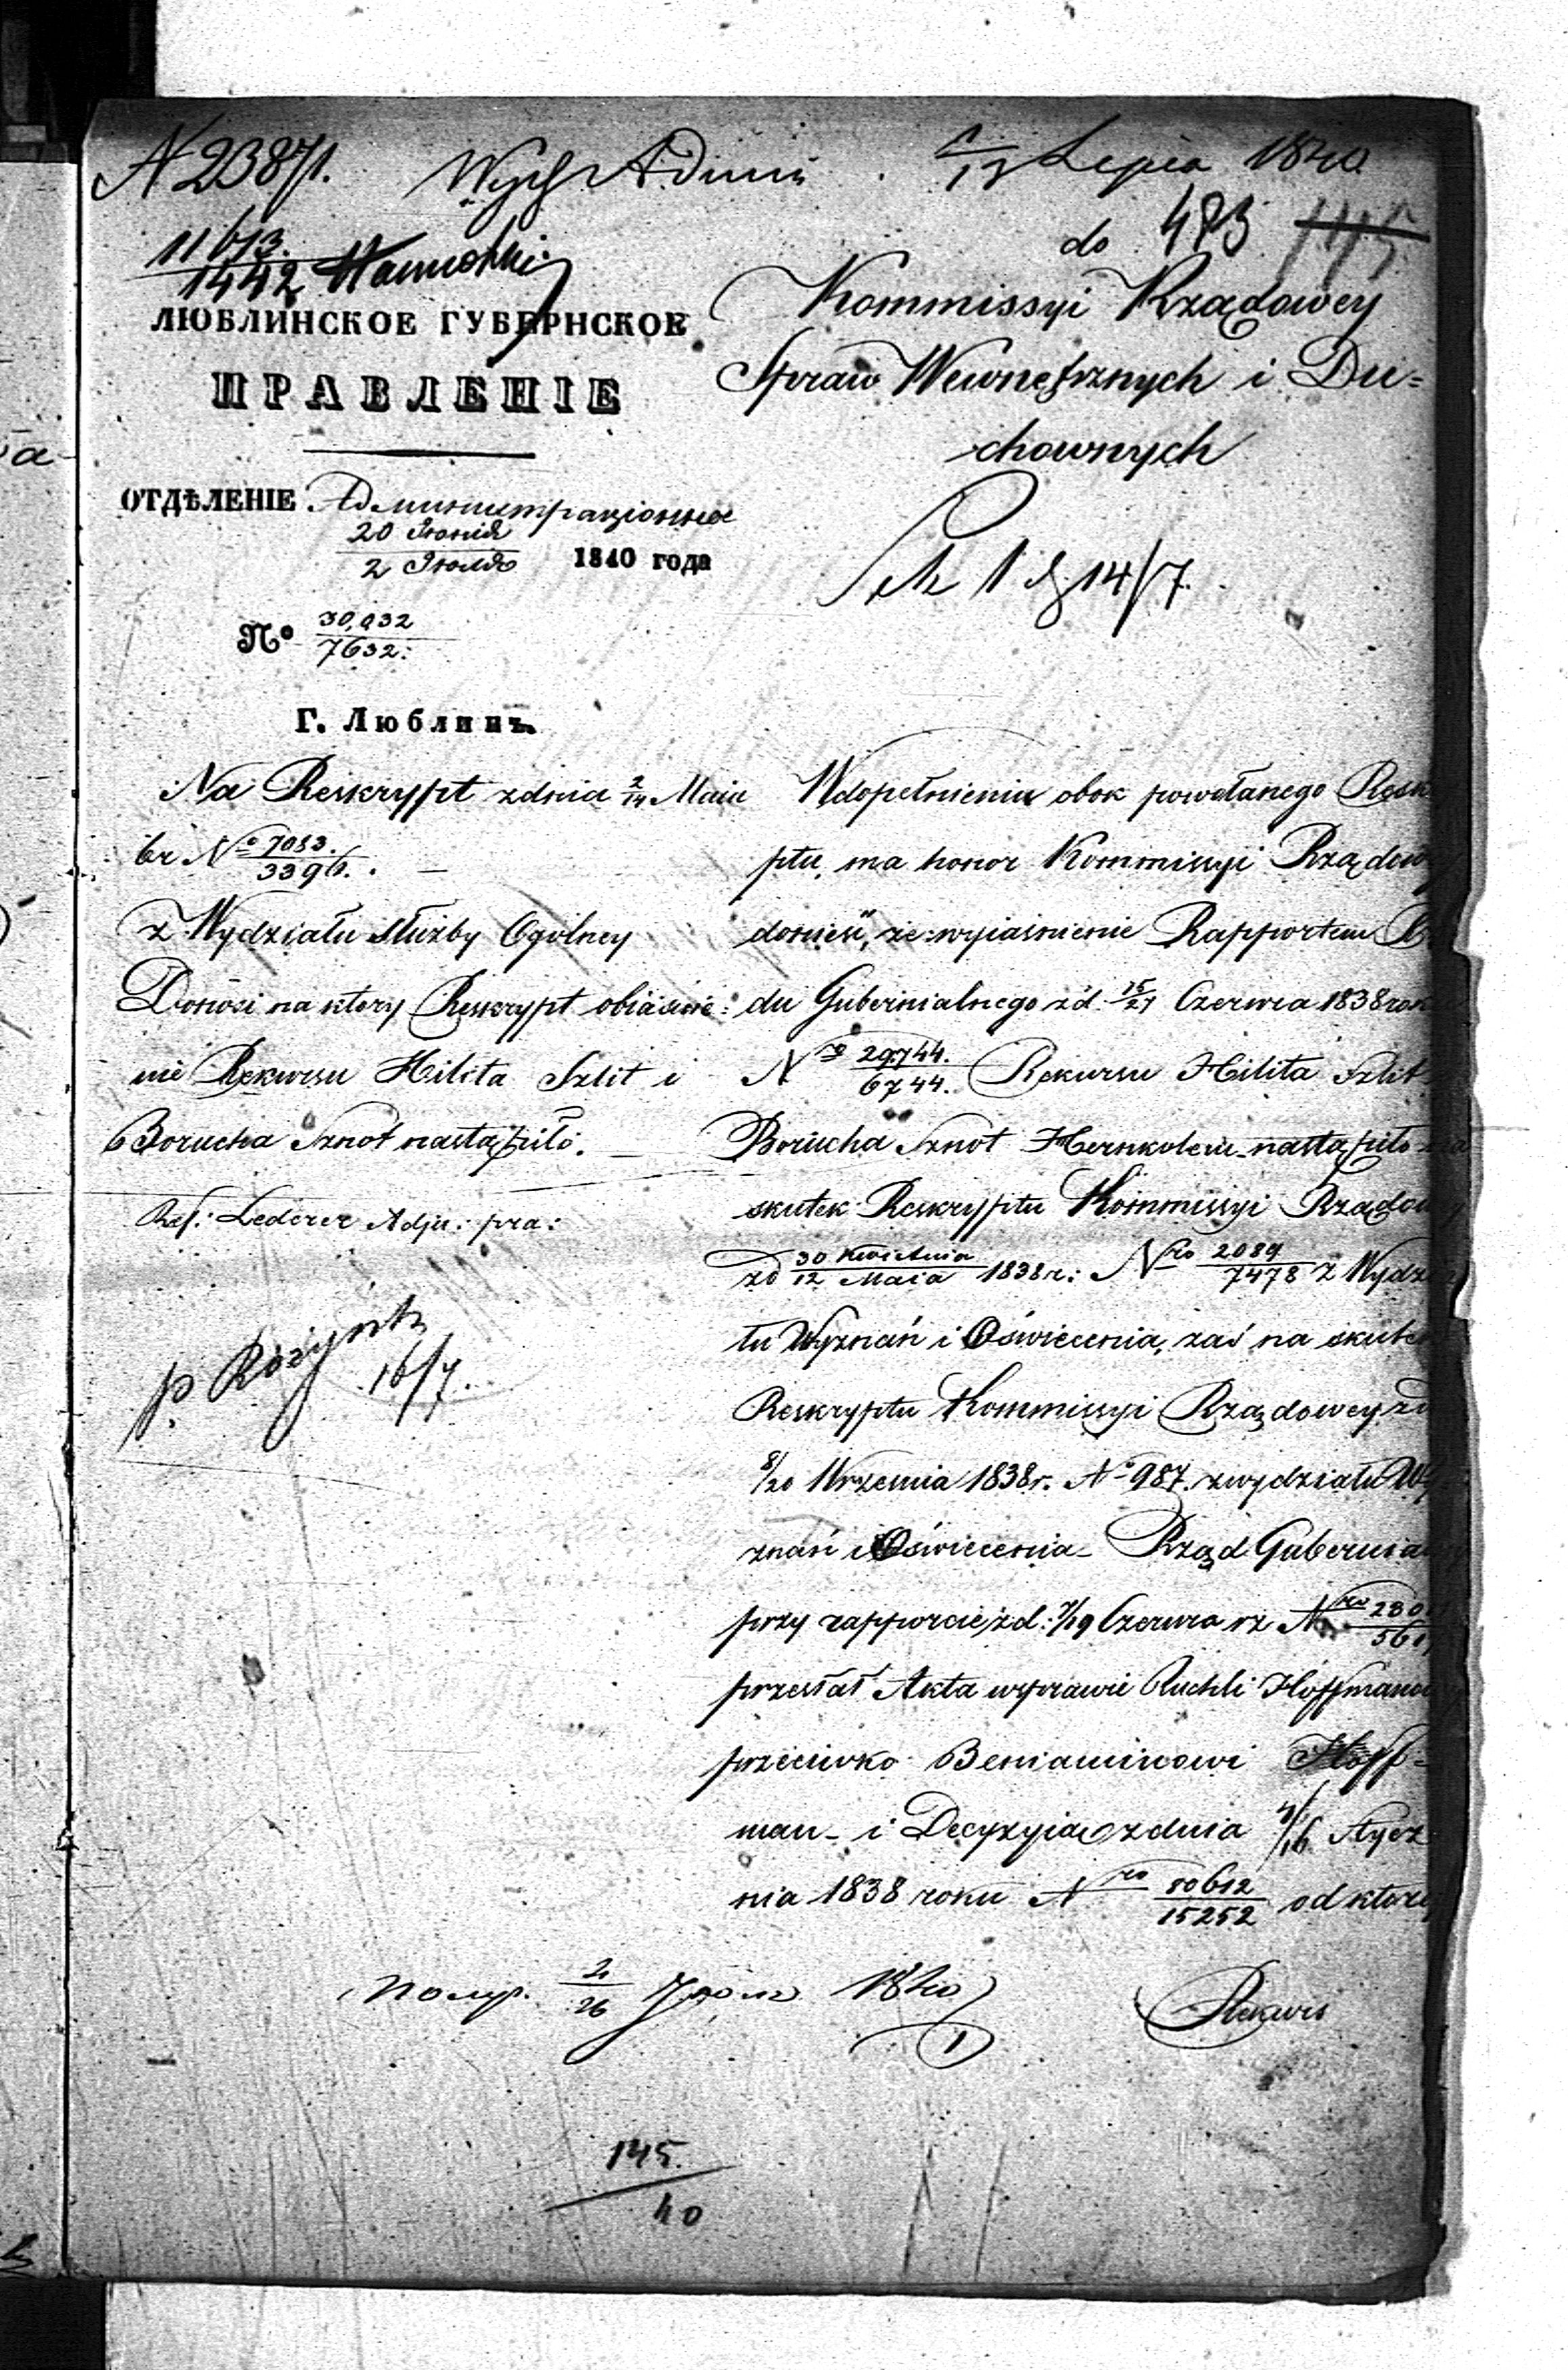 N 23871. Wych Admin 1/13 Lipca 1840
11613./1442
do 483
ЛЮБЛИНСКОЕ ГУБЕРНСКОЕ
ПРАВЛЕНІЕ
ОТДѢЛЕНІЕ Администраціонное
20 Іюнія/2 Іюля 1840 года
№ 30,032/7632:
Г. Люблинъ.
Kommissyi Rządowey
Spraw Wewnętrznych i Du=
chownych
14/7.
Na Reskrypt zdnia 2/14 Maia
br N° 7083./3396. . —
z Wydziału Służby Ogólney
Donosi na ktory Reskrypt obiaśnie=
nie Rekursu Hilita Szlit i
Borucha Sznot nastąpiło. —
Ref: Lederer Adju: pra:
p Rozynsk
16/7.
Wdopełnieniu obok powołanego Resk
ptu, ma honor Kommissyi Rządow
donieść, że wyiaśnienie Rapportem R
du Gubernialnego zd. 15/27 Czerwca 1838 rok
Nro 29744./6744. Rekursu Hilita Szlit
Borucha Sznot Herszkolem nastąpiło na
skutek Reskryptu Kommissyi Rządow
zd 30 Kwietnia/12 Maia 1838 r: Nro 2089/7478 z Wydzia
łu Wyznań i Oświecenia, zaś na skutek
Reskryptu Kommissyi Rządowey zd
8/20 Wrzesnia 1838 r. N° 987. zwydziału Wy
znań i Oświecenia — Rząd Gubernia
przy rapporcie zd: 7/19 Czerwca rz Nro 280/561
przesłał Akta wsprawie Ruchli Hoffmanow
przeciwko Beniaminowi Hoff=
man — i Decyzyią zdnia 4/16 Stycz
nia 1838 roku Nro 80612/15252 od ktorey
Rekurs
Получ. 2/26 1840
145./40